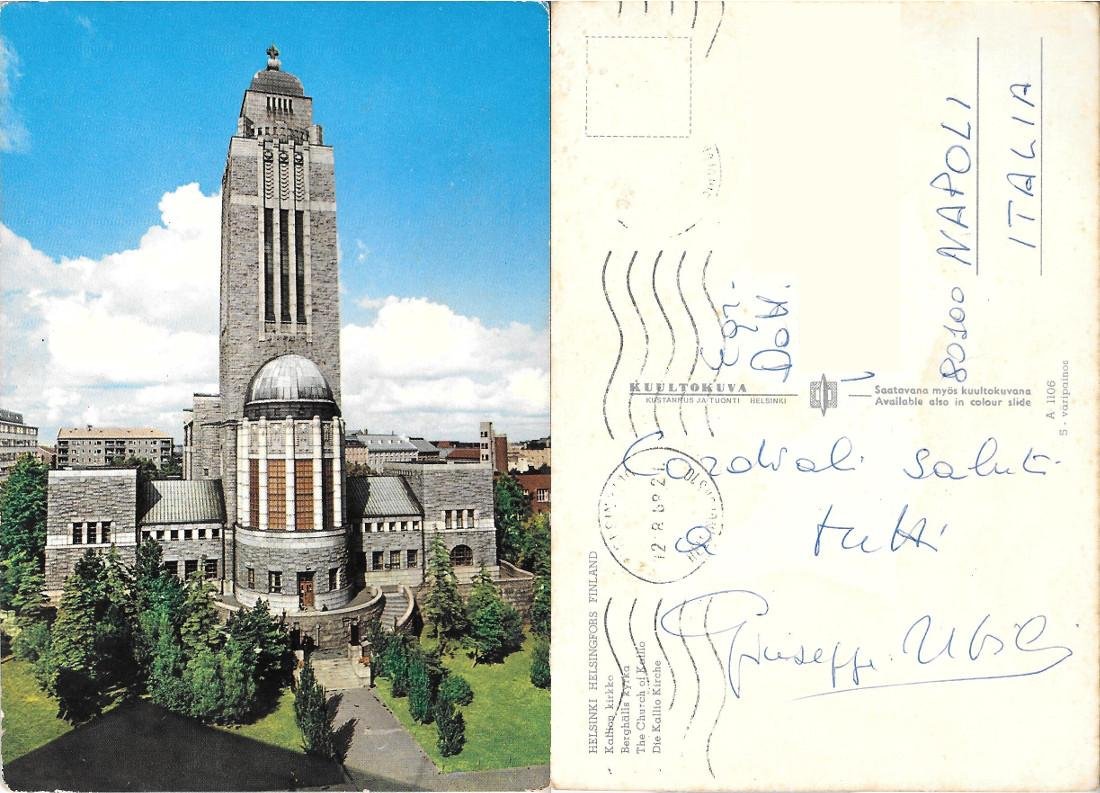 Egr.
Dott.
80100 NAPOLI
ITALIA
KUULTOKUVA
KUSTANNUS JA TUONTI HELSINKI
Saatavana myös kuultokuvana
Available also in colour slide
A 1106
5 - väripainos
Cordiali saluti
a tutti
Giuseppe
HELSINKI HELSINGFORS FINLAND
Kallion kirkko
Berghälls kyrka
The Church of Kallio
Die Kallio Kirche